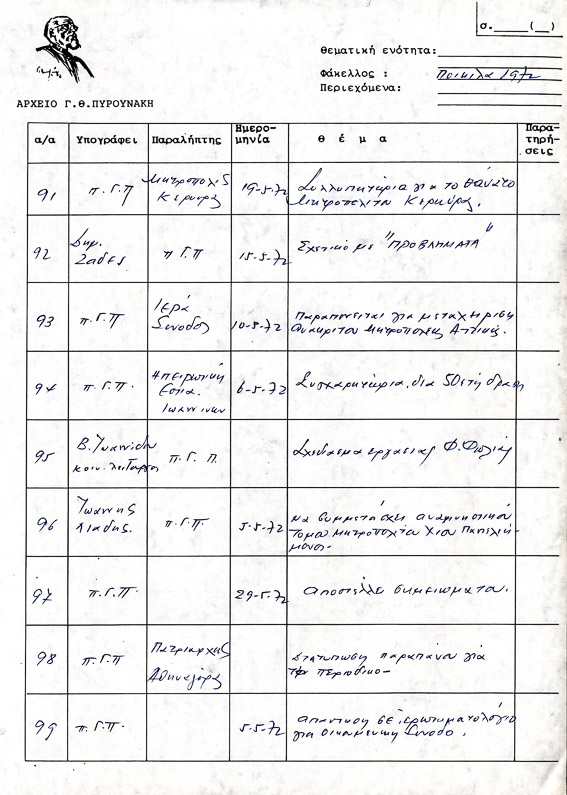 σ.____(__)
Θεματική ενότητα:
Φάκελλος : Ποικιλα 1972
Περιεχόμενα:
ΑΡΧΕΙΟ Γ.Θ.ΠΥΡΟΥΝΑΚΗ
α/α Υπογράφει Παραλήπτης Ημερομηνία θ έ μ α Παρατηρήσεις
91 π.Γ.Π Μητροπολις Κερκυρας 19-5-72 Συλλυπητήρια για το θάνατο
Μητροπολιτου Κερκύρας.
92 Δημ. Σαδες π Γ.Π 15-5-72 Σχετικό με "ΠΡΟΒΛΗΜΑΤΑ"
93 π.Γ.Π Ιερά Συνοδος 10-5-72 Παραπονειται για μεταχειριση
Μητροπολεως Αττικης.
94 π.Γ.Π. Ηπειρωτικη Εστια Ιωαννινων 6-5-72 Συγχαρητήρια δια 50ετή δραση
95 Β. Ιωαννιδη κοιν. λειτουργος π. Γ. Π. Σχεδιασμα εργασιας Φ. Φωλιάς
96 Ιωαννης Λιαδης. π.Γ.Π. 5-5-72 να συμμετάσχει αναμνηστικου
Τομου Μητροπολιτου Χιου Παντελεη-
μονος.
97 π.Γ.Π. 29-5-72 αποστελλει σημειωματα.
98 π.Γ.Π Πατριαρχης Αθηναγόρας Διατυπωση παραπόνου για
περιοδικο-
99 π.Γ.Π. 5-5-72 απαντηση σε ερωτηματολόγιο
για Οικουμενικη Συνοδο.